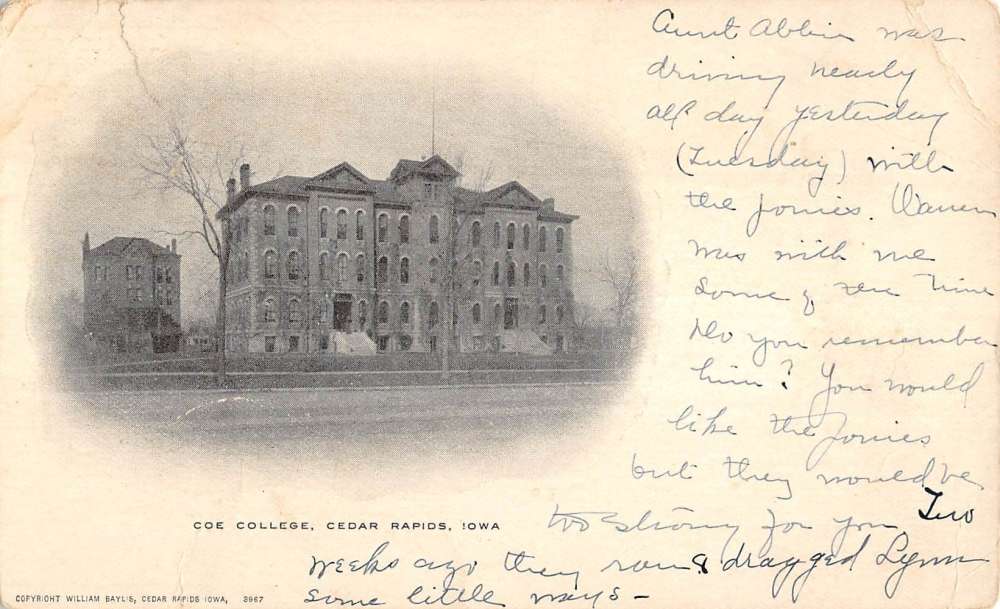 Aunt Abbie was
driving nearly
all day yesterday
(Tuesday) with
the ponies. Warren
was with me
some of the time
Do you remember
him? You would
like the ponies
but they would be
too strong for you Two
weeks ago they ran & dragged Lynn
some little ways -
COE COLLEGE, CEDAR RAPIDS, IOWA
COPYRIGHT WILLIAM BAYLIS, CEDAR RAPIDS IOWA, 3967